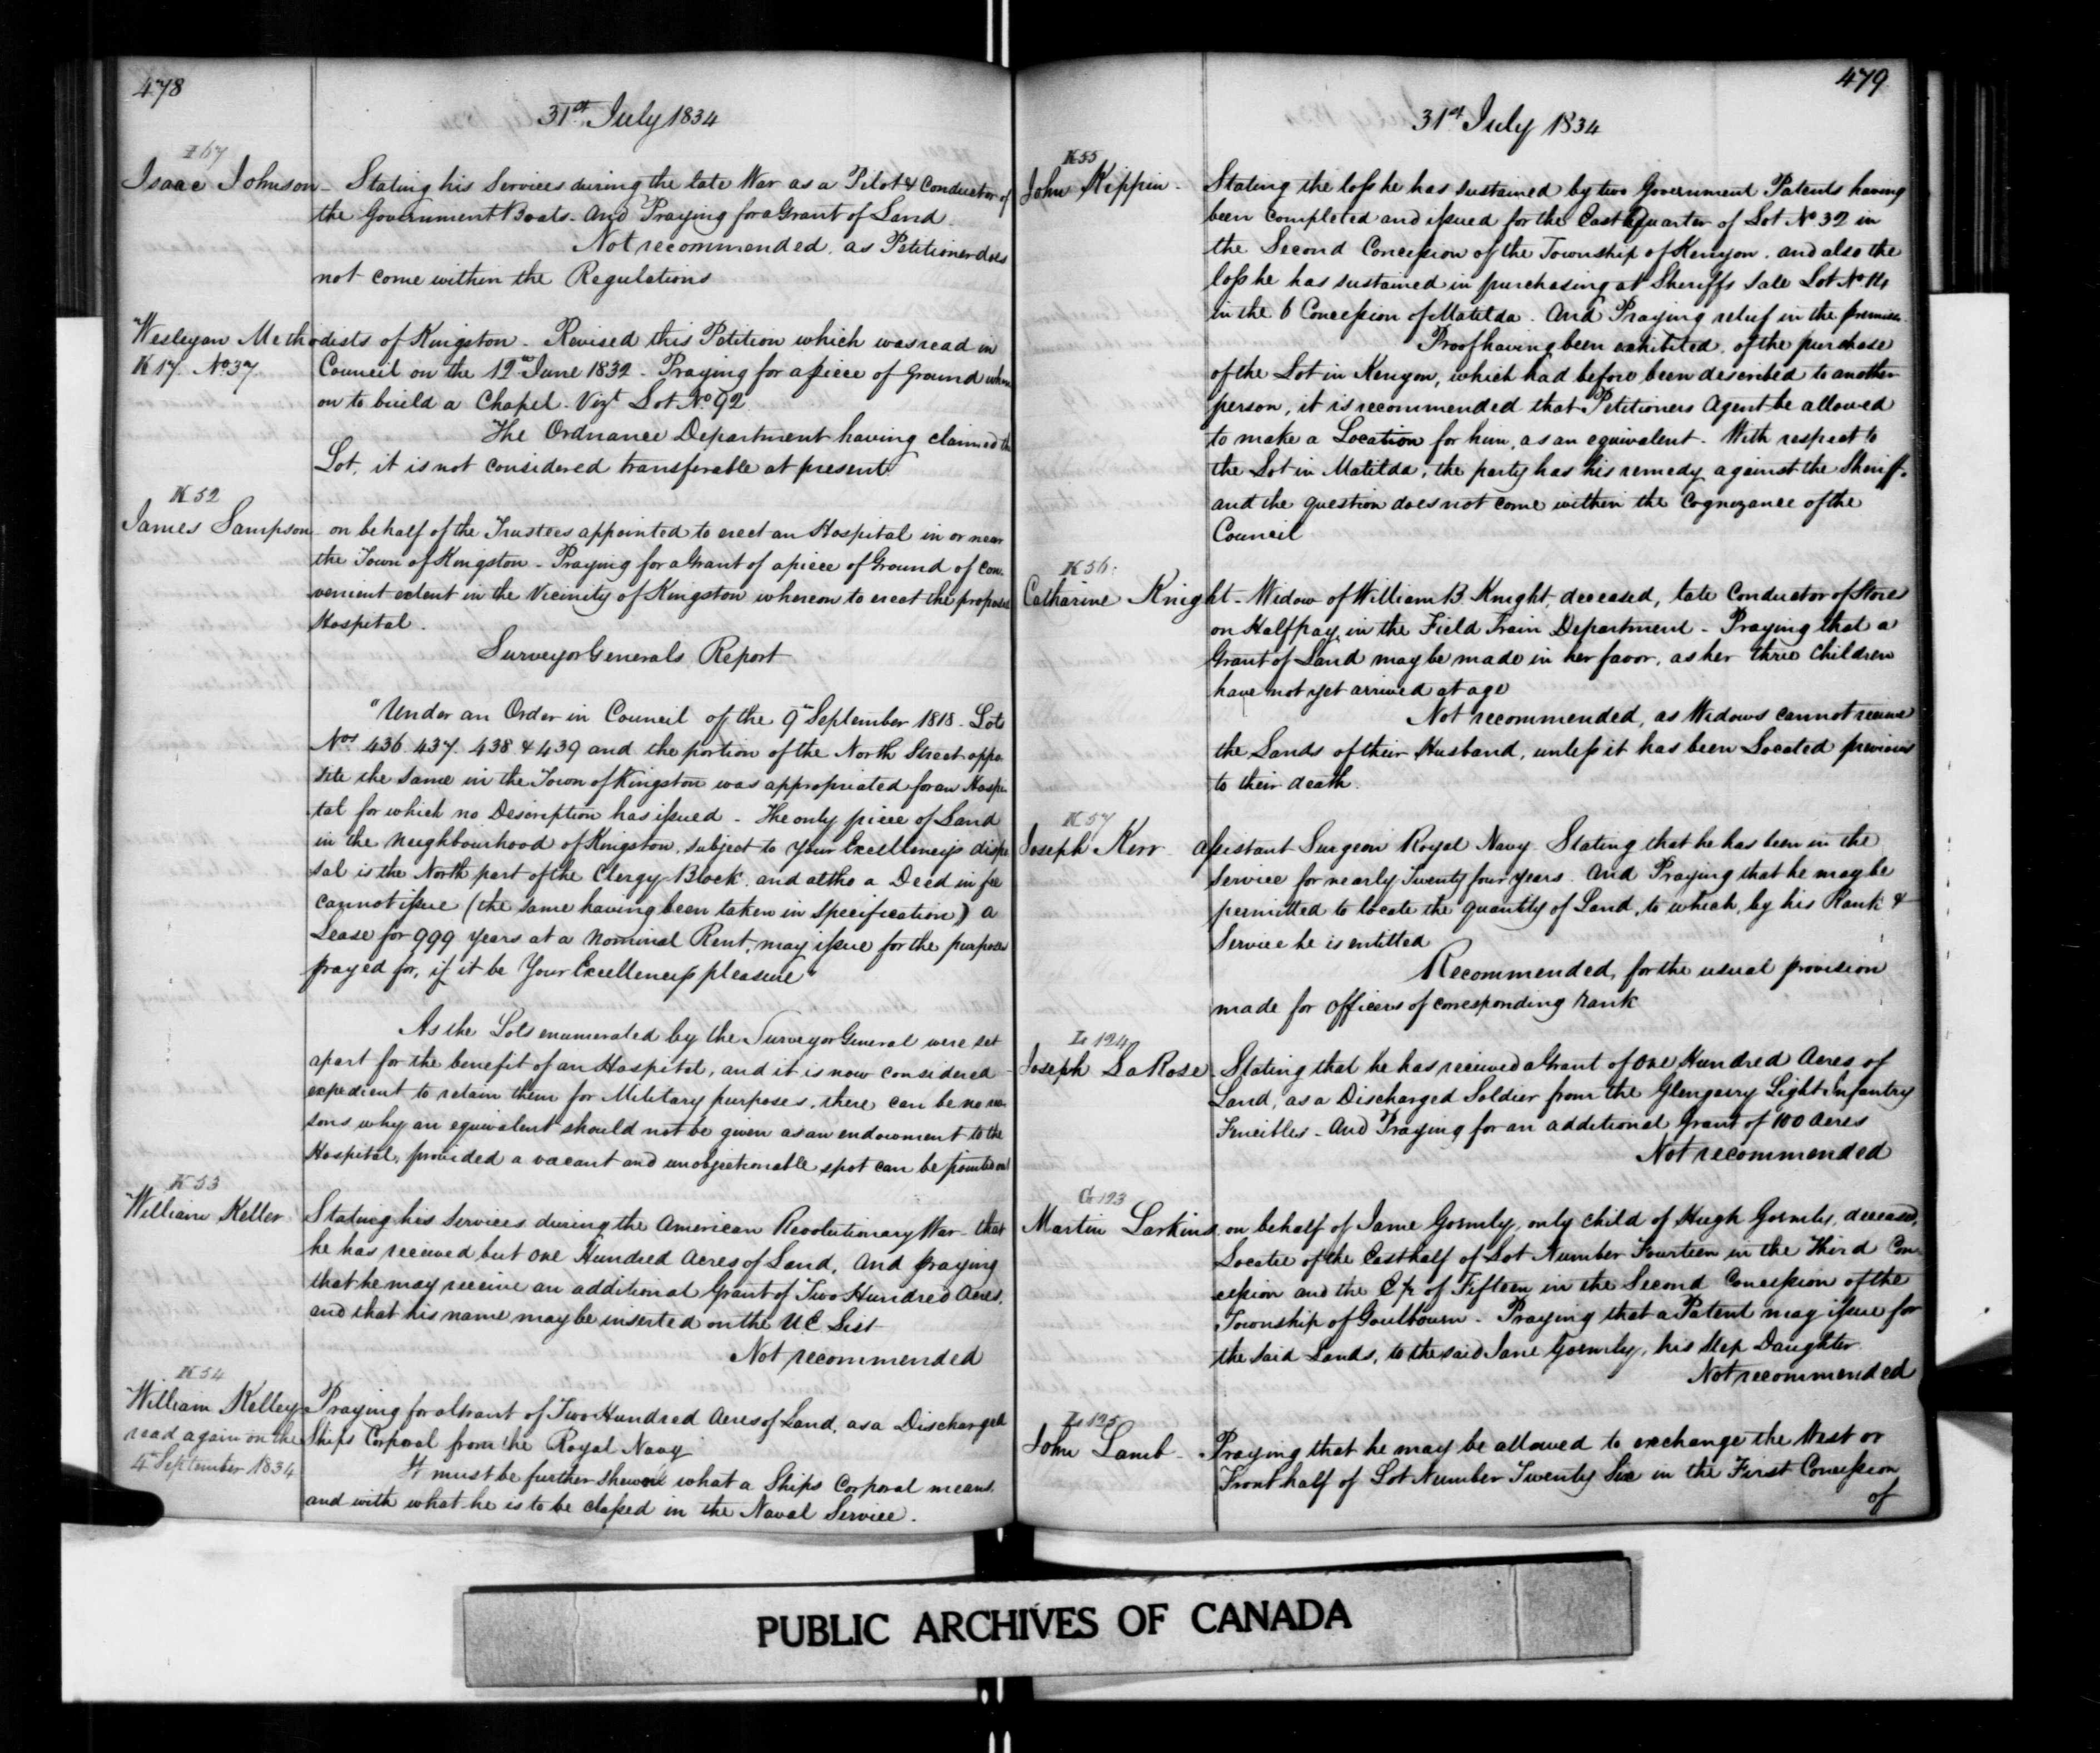 478
31st July 1834
I 67
Isaac Johnson - Stating his Services during the late War as a Pilot & Conductor of
the Government Boats. And Praying for a Grant of Land.
Not recommended, as Petitioner does
not come within the Regulations
Wesleyan Methodists of Kingston. Revised this Petition which was read in
K 17 No 37. Council on the 12th June 1832 - Praying for a piece of Ground where
on to build a Chapel. Vizt Lot No. 92
The Ordnance Department having claimed the
Lot, it is not considered transferable at present
K 52
James Sampson - on behalf of the Trustees appointed to erect an Hospital in or near
the Town of Kingston - Praying for a Grant of a piece of Ground of con-
venient extent in the Vicinity of Kingston whereon to erect the proposed
Hospital.
Surveyor Generals Report
"Under an Order in Council of the 9th September 1818 - Lots
Nos 436. 437. 438 & 439 and the portion of the North Street oppo-
site the same in the Town of Kingston was appropriated for an Hospi-
tal for which no Description has issued - The only piece of Land
in the Neighbourhood of Kingston, subject to Your Excellency's dispo
sal is the North part of the Clergy Block, and altho a Deed in fee
cannot issue (the same having been taken in Specification) a
Lease for 999 years at a Nominal Rent, may issue for the purposes
prayed for, if it be Your Excellency's pleasure"
As the Lots enumerated by the Surveyor General were set
apart for the benefit of an Hospital, and it is now considered
expedient to retain them for Military purposes, there can be no rea-
sons why an equivalent should not be given as an endowment to the
Hospital, provided a vacant and unobjectionable spot can be pointed out
K 53
William Keller Stating his Services during the American Revolutionary War - that
he has received but One Hundred Acres of Land, And praying
that he may receive an additional Grant of Two Hundred Acres,
and that his name may be inserted on the U.E List
Not recommended
K 54
William Kelley Praying for a Grant of Two Hundred Acres of Land, as a Discharged
read again on the Ships Corporal from the Royal Navy
4 September 1834
It must be further shewn what a Ships Corporal means.
and with what he is to be classed in the Naval Service.
479
31st July 1834
K 55
John Kippen - Stating the loss he has sustained by two Government Patents having
been completed and issued for the East Quarter of Lot No 32 in
the Second Concession of the Township of Kenyon, and also the
loss he has sustained in purchasing at Sheriffs Sale Lot No 14
in the 6 Concession of Matilda. And Praying relief in the premises
Proof having been exhibited, of the purchase
of the Lot in Kenyon, which had before been described to another
person, it is recommended that Petitioners Agent be allowed
to make a Location for him, as an equivalent. With respect to
the Lot in Matilda, the party has his remedy against the Sheriff,
and the question does not come within the Cognizance of the
Council
K 56.
Catharine Knight - Widow of William B. Knight, deceased, late Conductor of Stores
on Halfpay in the Field Train Department - Praying that a
Grant of Land may be made in her favor, as her three Children
have not yet arrived at age
Not recommended, as Widows cannot receive
the Lands of their Husband, unless it has been Located previous
to their death.
K 57
Joseph Kerr - Assistant Surgeon Royal Navy. Stating that he has been in the
Service for nearly Twenty four years. And Praying that he may be
permitted to locate the quantity of Land, to which, by his Rank &
Service he is entitled
Recommended, for the usual provision
made for Officers of corresponding rank
L 124
Joseph LaRose Stating that he has received a Grant of One Hundred Acres of
Land, as a Discharged Soldier from the Glengarry Light Infantry
Fencibles - And Praying for an additional Grant of 100 acres
Not recommended
G 123
Martin Larkins on behalf of Jane Gormly, only child of Hugh Gormly, deceased,
Locatee of the East half of Lot Number Fourteen in the Third Con-
cession and the E ½ of Fifteen in the Second Concession of the
Township of Goulbourn - Praying that a Patent may issue for
the said Lands, to the said Jane Gormly, his Step Daughter
Not recommended
L 125
John Lamb - Praying that he may be allowed to exchange the West or
Front half of Lot Number Twenty Six in the First Concession
of
PUBLIC ARCHIVES OF CANADA